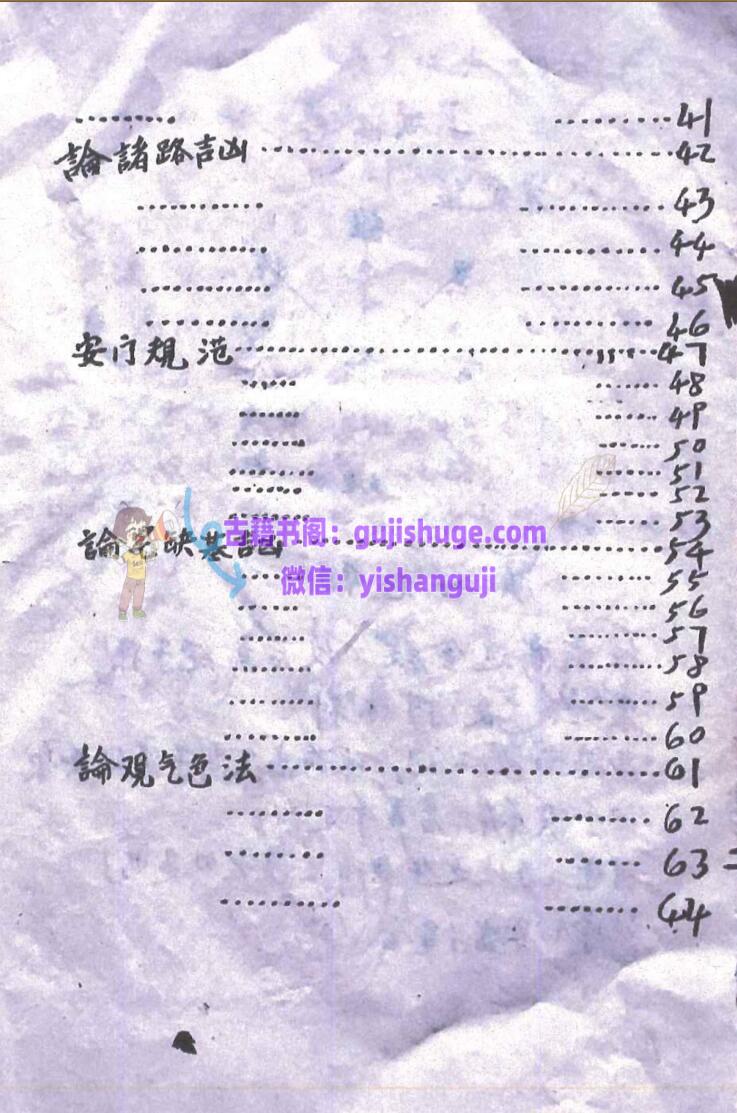 ………… ………… 41
論諸路吉凶 ………… 42
………… ………… 43
………… ………… 44
………… ………… 45
………… ………… 46
安门規范 ………… 47
………… ………… 48
………… ………… 49
………… ………… 50
………… ………… 51
………… ………… 52
………… ………… 53
論 缺基吉凶 ………… 54
古籍书阁：gujishuge.com
微信：yishanguji
………… ………… 55
………… ………… 56
………… ………… 57
………… ………… 58
………… ………… 59
………… ………… 60
論观气色法 ………… 61
………… ………… 62
………… ………… 63
………… ………… 64